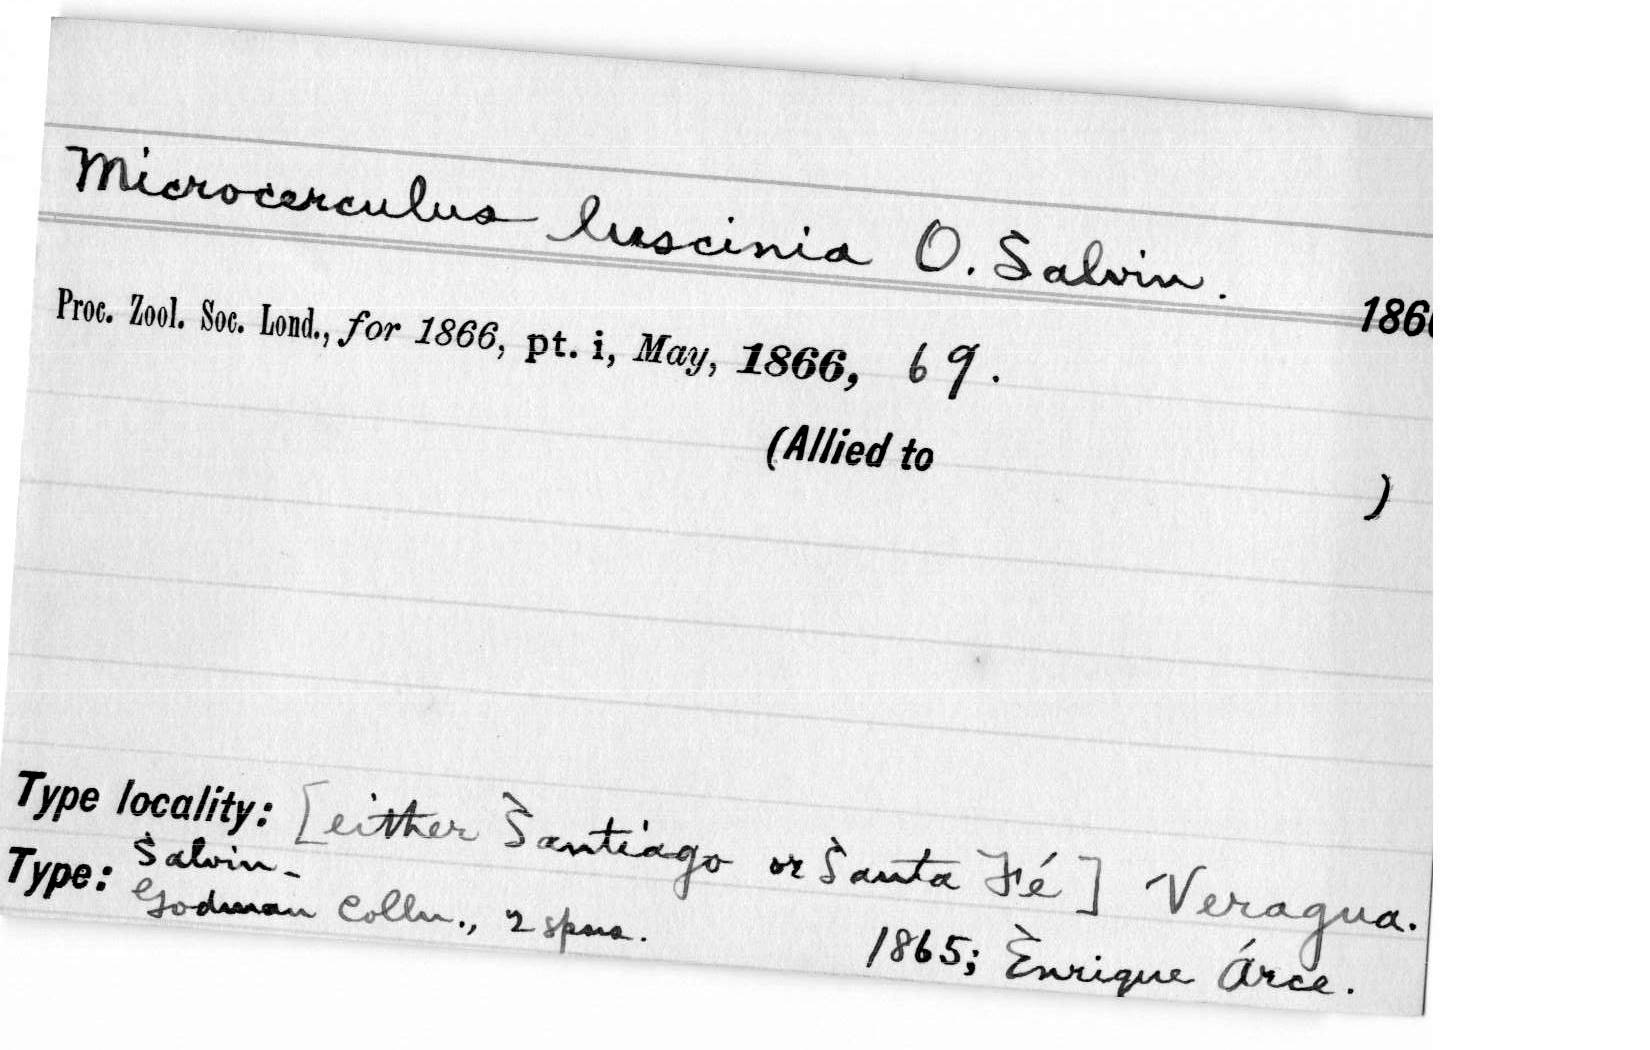 Microcerculus luscinia O. Salvin.
186
Proc. Zool. Soc. Lond., for 1866, pt. i, May, 1866, 69.
(Allied to )
Type locality: [either Santiago or Santa Fé] Veragua.
Type: Salvin-
Godman Colln., 2 spms. 1865; Enrique Árce.